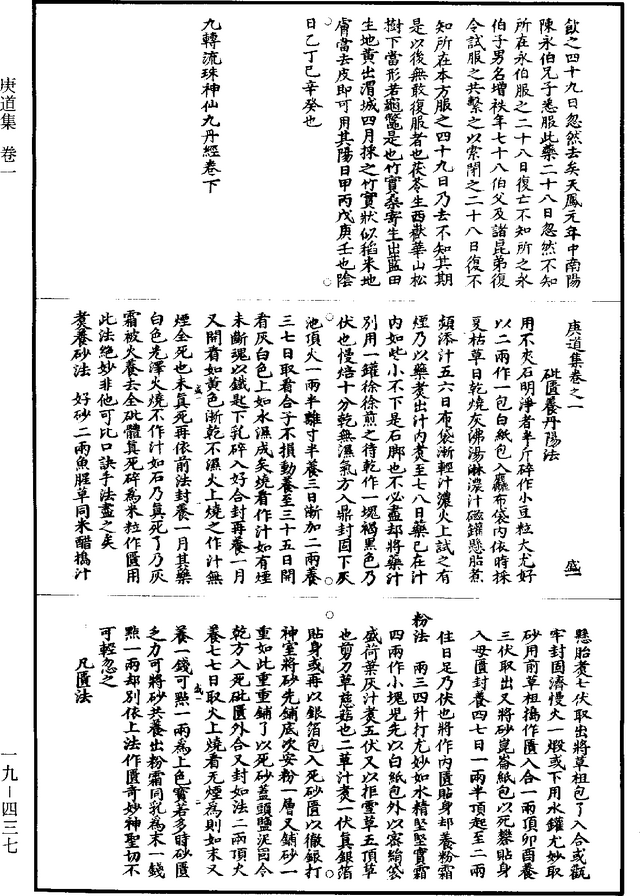 飲之四十九日忽然去矣天鳳元年中南陽
陳永伯兄子悉服此藥二十八日忽然不知
所在永伯服之二十八日復亡不知所之永
伯子男名增秩年七十八伯父及諸昆弟復
令試服之共繫之以索閉之二十八日復不
知所在本方服之四十九日乃去不知其期
是以後無敢復服者也茯苓生西嶽華山松
樹下當形若龜鼈是也竹實桑寄生出藍田
生地黃出渭城四月採之竹實狀似稻米地
膚當去皮即可用其陽日甲丙戊庚壬也陰
日乙丁己辛癸也
九轉流珠神仙九丹經卷下
庚道集卷之一
盛一
砒匱養丹陽法
用不夾石明淨者半斤碎作小豆粒大尤好
以二兩作一包白紙包入麤布袋內依時採
夏枯草日乾燒灰沸湯淋濃汁磁鑵懸胎煮
頻添汁五六日布袋漸輕汁濃火上試之有
煙乃以藥煮出汁內煮至七八日藥已在汁
內如些小不下是石脚也不必盡却將藥汁
別用一鑵徐徐煎之待乾作一塊褐黑色乃
伏也慢焙十分乾無濕氣方入鼎封固下灰
池頂火一兩半離寸半養三日漸加二兩養
三七日取看合子不損動養至三十五日開
看灰白色上如水濕成矣燒看作汁如有煙
未斷魂以鐵匙下乳碎入好合封再養一月
又開看如黃色漸乾不濕火上燒之作汁無
煙全死也未真死再依前法封養一月其藥
白色光澤火燒不作汁如石乃真死了乃灰
霜被火養去全砒體真死碎為米粒作匱用
此法絕妙非他可比口訣手法盡之矣
煮養砂法 好砂二兩魚腥草同米醋擣汁
懸胎煮七伏取出將草柤包了入合或甑
牢封固濟慢火一煅或下用水鑵尤妙取
砂用前草柤擣作匱入合一兩頂卯酉養
三伏取出又將砂崑崙紙包以死礬貼身
入母匱封養四七日一兩半頂起至二兩
住日足乃伏也將作內匱貼身却養粉霜
粉法 兩三四升打尤妙如水精堅堅實霜
四兩作小塊兒先以白紙包外以密絹袋
盛荷葉灰汁煮五伏又以拒霜草五頂草
也剪刀草慈菇也二草汁煮一伏真銀箔
貼身或再以銀箔包入死砂匱以徹銀打
神室將砂先鋪底次安粉一層又鋪砂一
重如此重重鋪了以死砂蓋頭鹽泥固令
乾方入死砒匱外合又封如法二兩頂火
養七七日取火上燒看无煙為則如未又
養一錢可點一兩為上色寶若多時砂匱
乏力可將砂共養出粉霜同乳為末一錢
點一兩却別依上法作匱奇妙神聖切不
可輕忽之
凡匱法
庚道集 卷一
一九－四三七